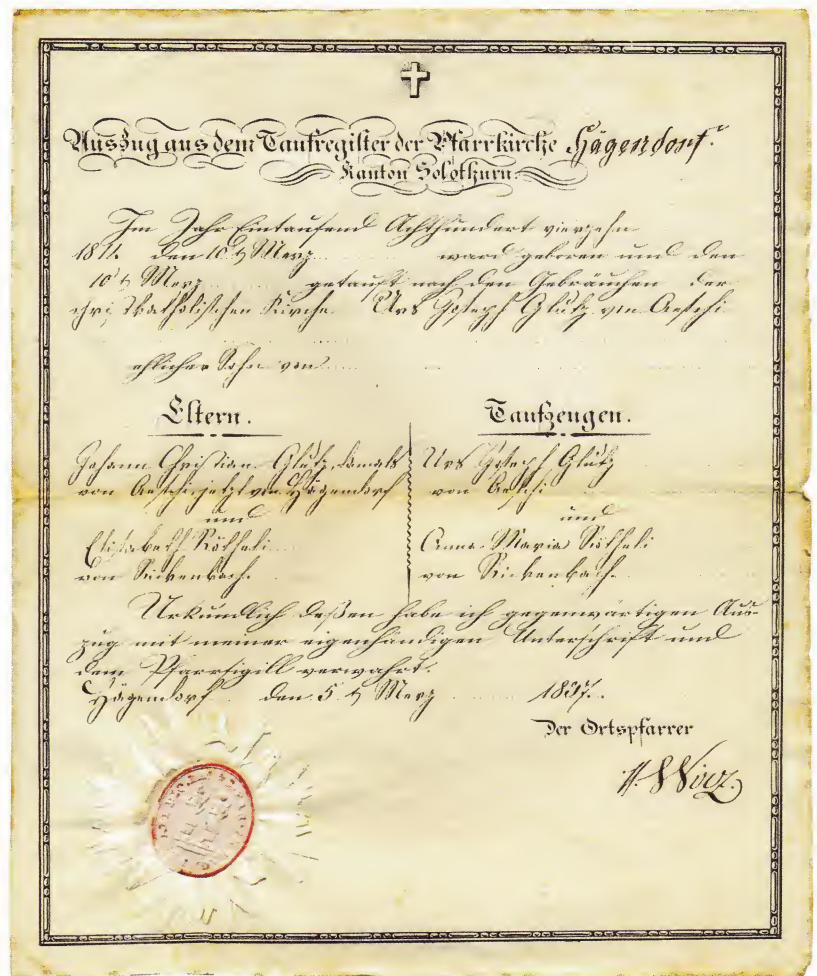 Auszug aus dem Taufregister der Pfarrkirche Hägendorf.
Kanton Solothurn.
Im Jahr Eintausend Achthundert vierzehn
18 den 10ts Merz ward geboren und den
10ts Merz getauft nach den Gebräuchen der
christkatholischen Kirche. Urs Joseph Glutz von Aeschi
ehlicher Sohn von
Eltern.
Johann Christian Glutz, damals
von Aeschi, jetzt von Hägendorf
und
Elisabeth Rötheli
von Rickenbach.
Taufzeugen.
Urs Joseph Glutz
von Aeschi
und
Anna Maria Rötheli
von Rickenbach.
Urkundlich deßen habe ich gegenwärtigen Aus-
zug mit meiner eigenhändigen Unterschrift und
dem Pfarrsigill verwahrt.
Hägendorf den 5ts Merz 1837.
Der Ortspfarrer
Wirz.